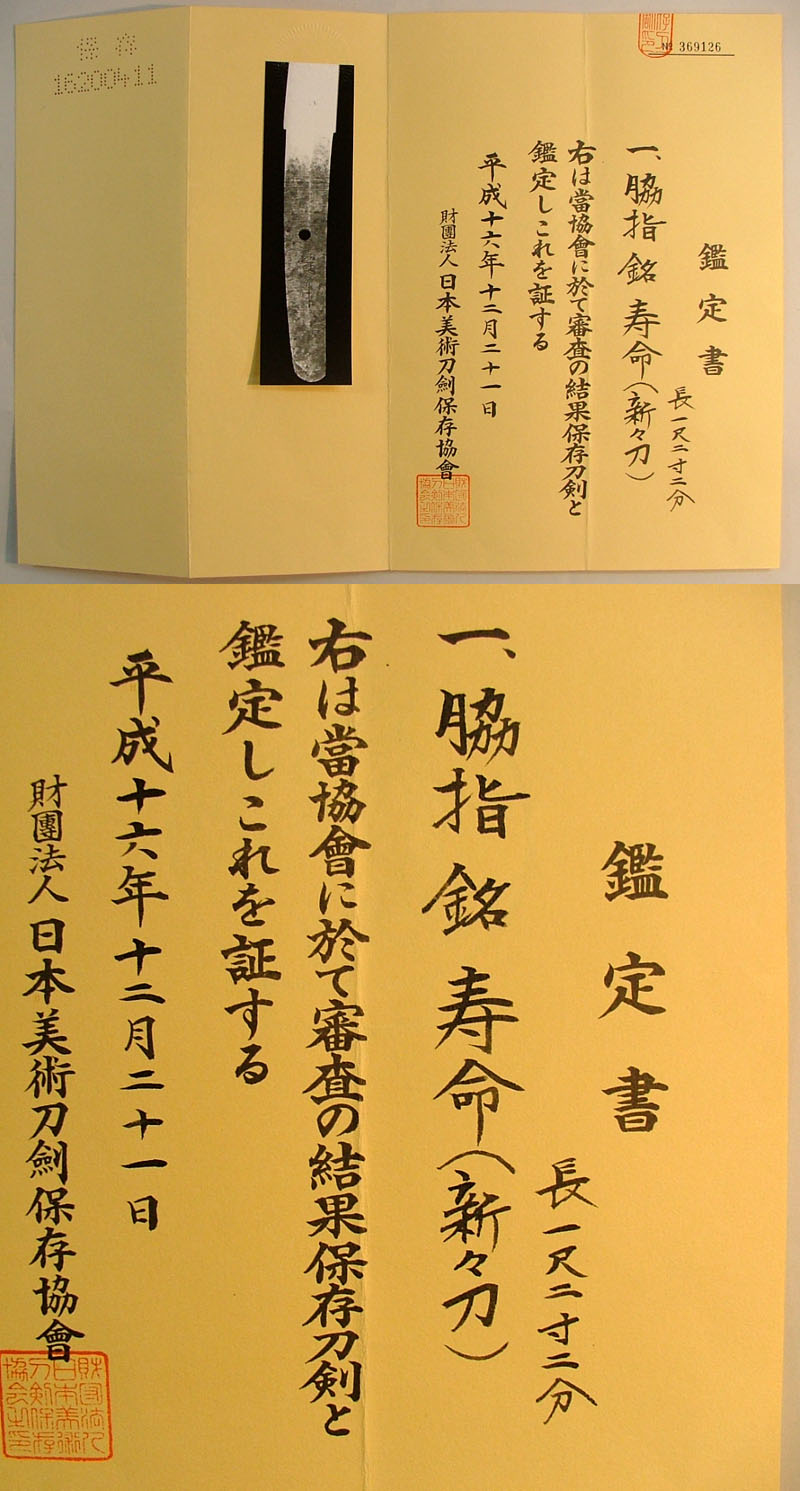 保存
16200411
№ 369126
鑑定書
長一尺二寸二分
一、脇指 銘 寿命(新々刀)
右は當協會に於て審査の結果保存刀剣と
鑑定しこれを証する
平成十六年十二月二十一日
財團法人 日本美術刀劍保存協會
鑑定書
長一尺二寸二分
一、脇指 銘 寿命(新々刀)
右は當協會に於て審査の結果保存刀剣と
鑑定しこれを証する
平成十六年十二月二十一日
財團法人 日本美術刀劍保存協會